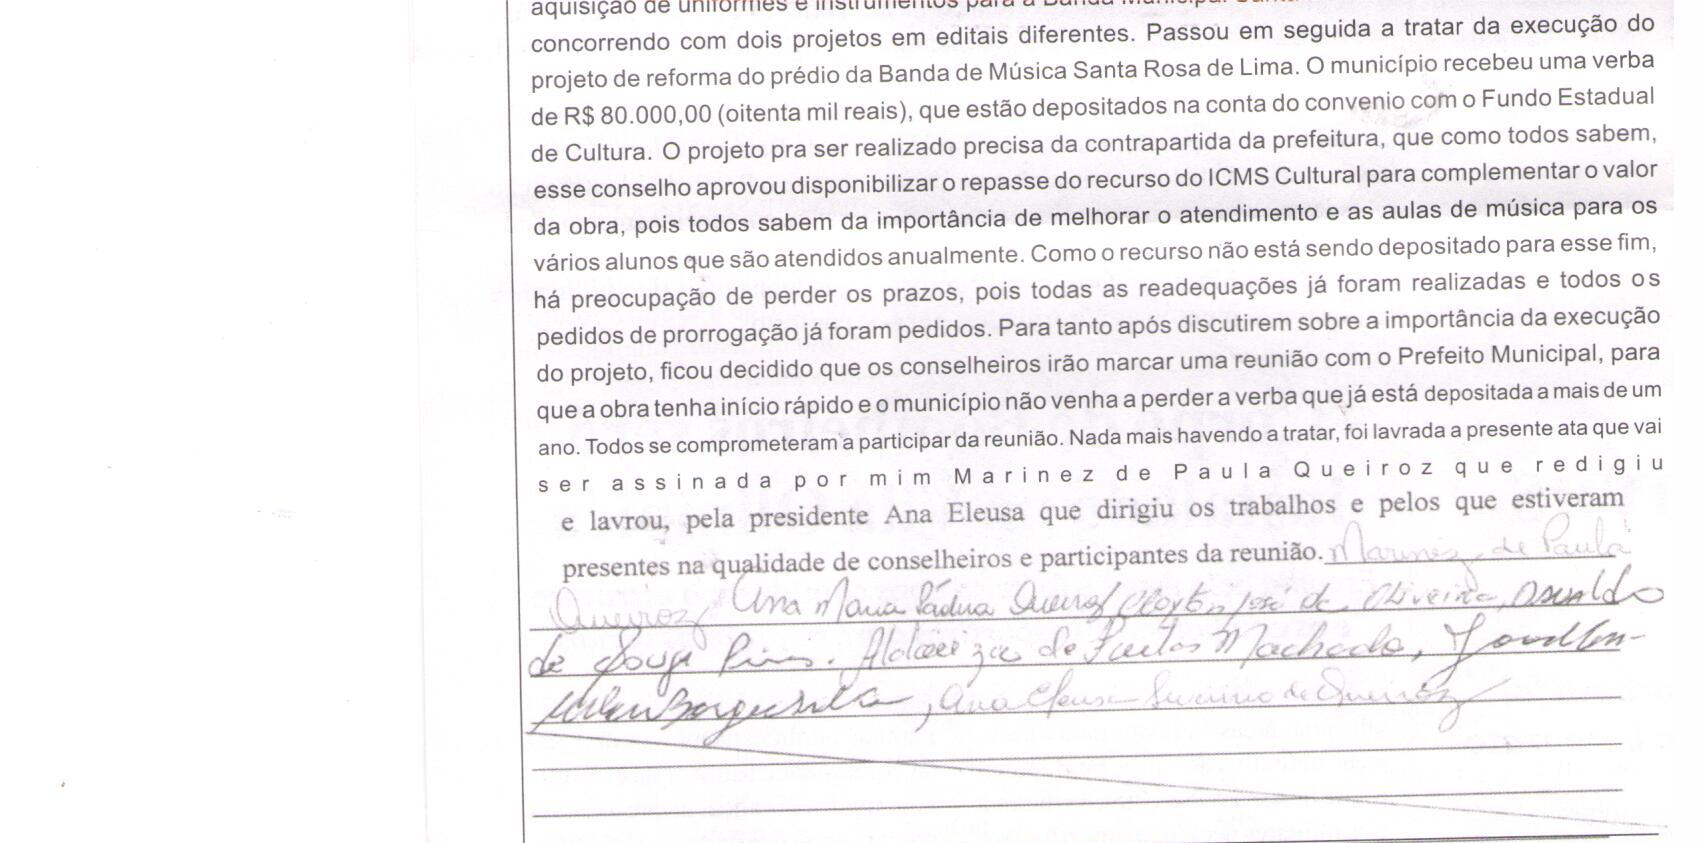 aquisição de uniformes e instrumentos para a Banda Municipal
concorrendo com dois projetos em editais diferentes. Passou em seguida a tratar da execução do
projeto de reforma do prédio da Banda de Música Santa Rosa de Lima. O município recebeu uma verba
de R$ 80.000,00 (oitenta mil reais), que estão depositados na conta do convenio com o Fundo Estadual
de Cultura. O projeto pra ser realizado precisa da contrapartida da prefeitura, que como todos sabem,
esse conselho aprovou disponibilizar o repasse do recurso do ICMS Cultural para complementar o valor
da obra, pois todos sabem da importância de melhorar o atendimento e as aulas de música para os
vários alunos que são atendidos anualmente. Como o recurso não está sendo depositado para esse fim,
há preocupação de perder os prazos, pois todas as readequações já foram realizadas e todos os
pedidos de prorrogação já foram pedidos. Para tanto após discutirem sobre a importância da execução
do projeto, ficou decidido que os conselheiros irão marcar uma reunião com o Prefeito Municipal, para
que a obra tenha início rápido e o município não venha a perder a verba que já está depositada a mais de um
ano. Todos se comprometeram a participar da reunião. Nada mais havendo a tratar, foi lavrada a presente ata que vai
ser assinada por mim Marinez de Paula Queiroz que redigiu
e lavrou, pela presidente Ana Eleusa que dirigiu os trabalhos e pelos que estiveram
presentes na qualidade de conselheiros e participantes da reunião. Marinez de Paula
Queiroz, Ana Maria Pádua Queiroz, José de Oliveira, Osvaldo
de Souza Pires. de Freitas Machado,
Borges Silva, Ana Eleusa Severino de Queiroz